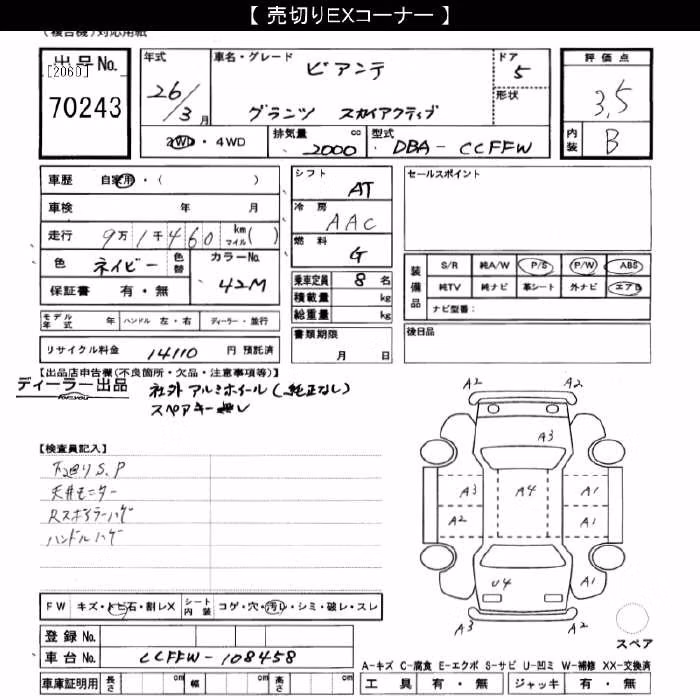 【 売切りEXコーナー 】
(複合機)対応用紙
出品No.
[2060]
70243
年式
26/3月
車名・グレード
ビアンテ
グランツ スカイアクティブ
ドア
5
形状
評価点
3.5
内装
B
2WD ・ 4WD
排気量
2000 cc
型式
DBA - CCFFW
車歴 自家用・( )
車検 年 月
走行 9万1千460 km マイル( )
色 ネイビー 色替
カラーNo.
42M
保証書 有・無
シフト
AT
冷房
AAC
燃料
G
乗車定員 8 名
積載量 kg
総重量 kg
書類期限
月 日
セールスポイント
装備品
S/R 純A/W P/S P/W ABS
純TV 純ナビ 革シート 外ナビ エアB
ナビ型番:
後日品
モデル年式 年 ハンドル 左・右 ディーラー・並行
リサイクル料金 14110 円 預託済
【出品店申告欄(不良箇所・欠品・注意事項等)】
ディーラー出品
社外アルミホイール(純正なし)
スペアキー無し
【検査員記入】
下廻りS.P
天井モニター
Rスポイラーハゲ
ハンドルハゲ
A2 A2
A3
A3 A4 A1
A2 A1
U4 A1
A3 A2
スペア
FW キズ・トビ石・割レX シート内装 コゲ・穴・汚レ・シミ・破レ・スレ
登録No.
車台No. CCFFW-108458
車庫証明用 長さ cm 幅 cm 高さ cm
A-キズ C-腐食 E-エクボ S-サビ U-凹ミ W-補修 XX-交換済
工具 有・無 ジャッキ 有・無